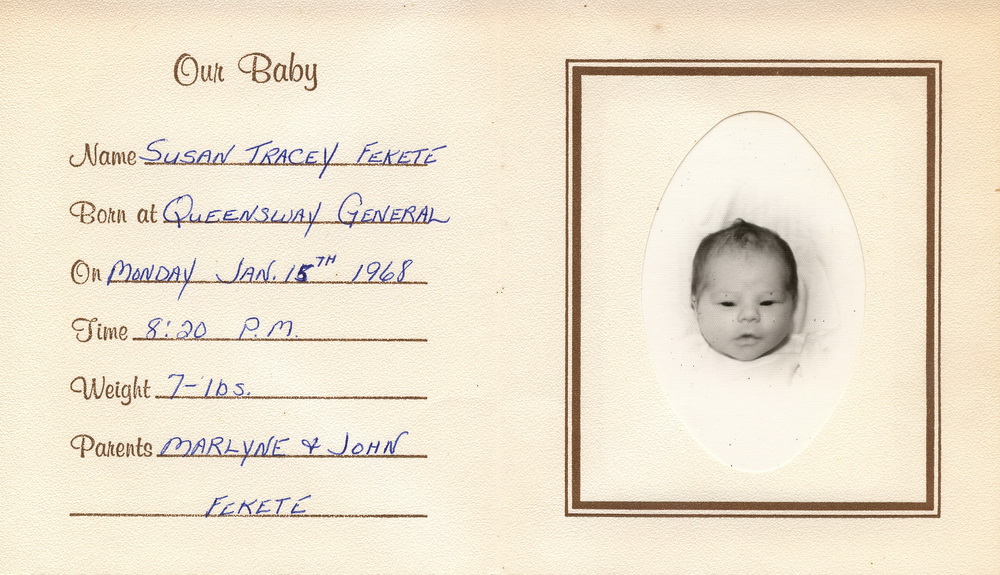 Our Baby
Name SUSAN TRACEY FEKETE
Born at QUEENSWAY GENERAL
On MONDAY JAN. 15TH 1968
Time 8:20 P.M.
Weight 7-lbs.
Parents MARLYNE & JOHN
FEKETE